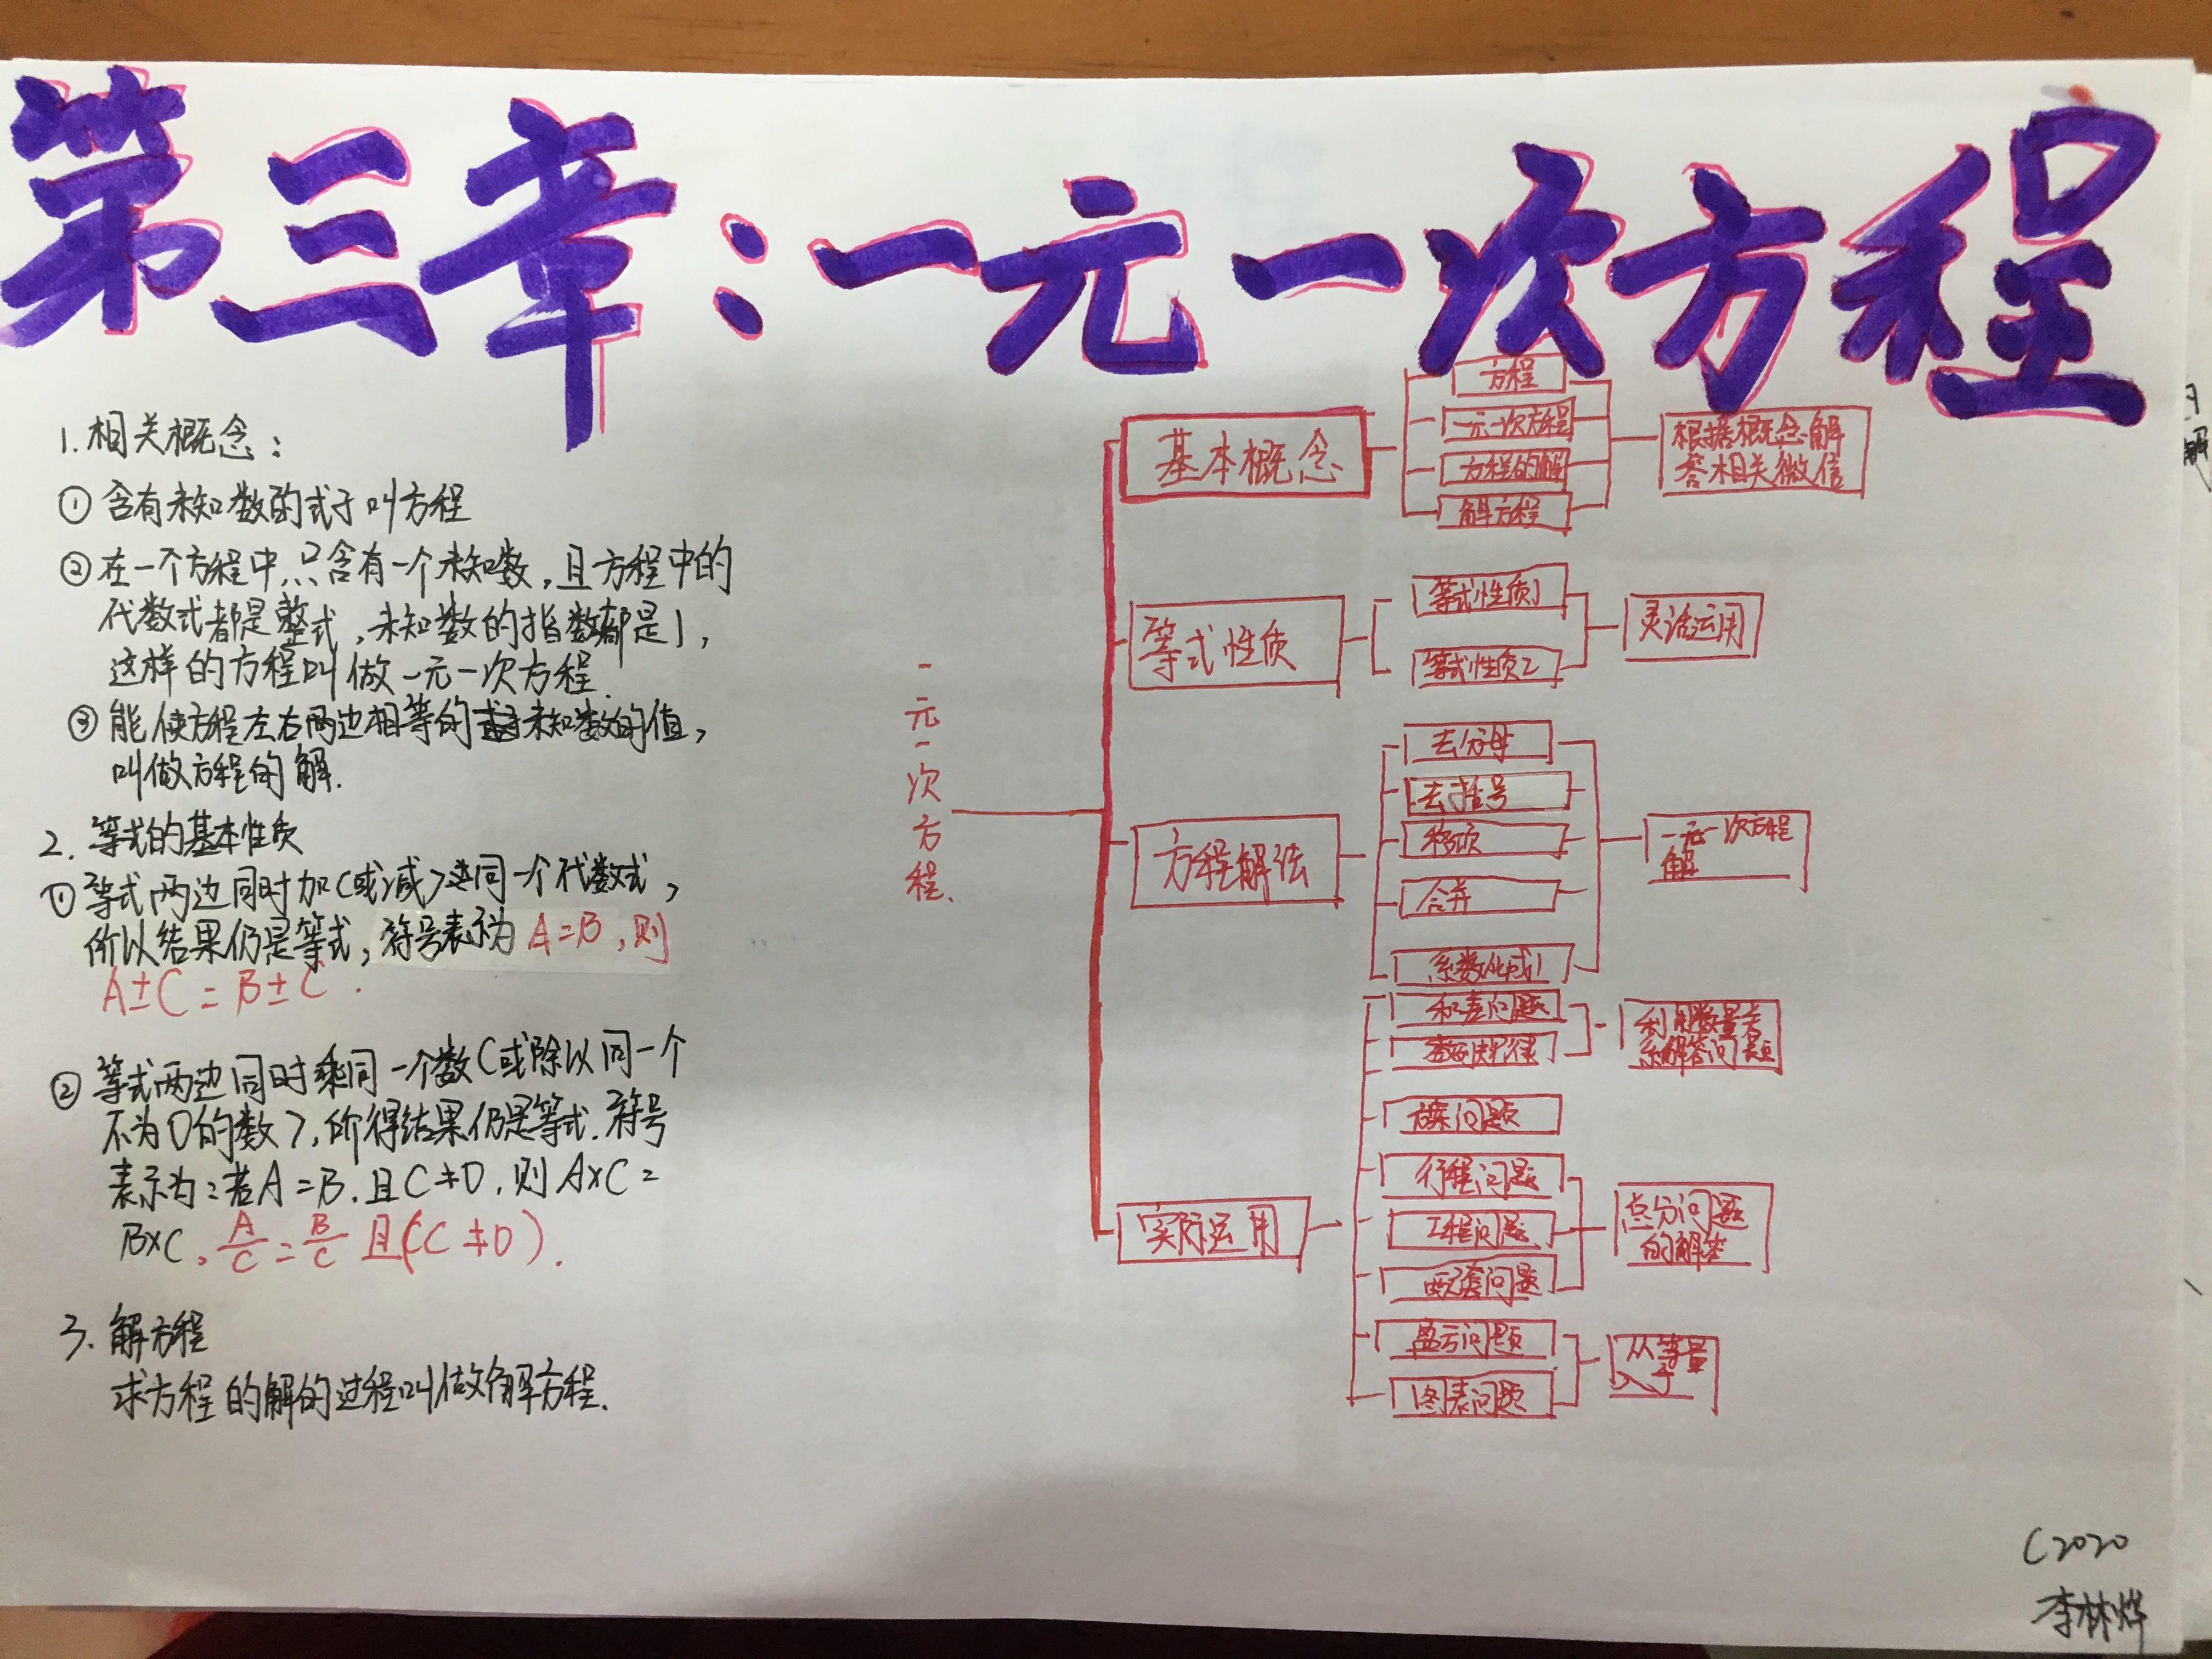 第三章:一元一次方程
1.相关概念:
①含有未知数的式子叫方程
②在一个方程中,只含有一个未知数,且方程中的
代数式都是整式,未知数的指数都是1,
这样的方程叫做一元一次方程.
③能使方程左右两边相等的未知数的值,
叫做方程的解.
2.等式的基本性质
①等式两边同时加(或减)同一个代数式,
所以结果仍是等式,符号表示为A=B,则
A±C=B±C.
②等式两边同时乘同一个数(或除以同一个
不为0的数),所得结果仍是等式.符号
表示为:若A=B.且C≠0,则A×C=
B×C,A/C=B/C且(C≠0).
3.解方程
求方程的解的过程叫做解方程.
一元一次方程.
基本概念
方程
一元一次方程
方程的解
解方程
根据概念解
答相关微信
等式性质
等式性质1
等式性质2
灵活运用
方程解法
去分母
去括号
移项
合并
系数化成1
一元一次方程
解
实际运用
和差问题
利用数量关
系解答问题
行程问题
工程问题
配套问题
的解答
盈亏问题
图表问题
从等量
入手
C2020
李林烨